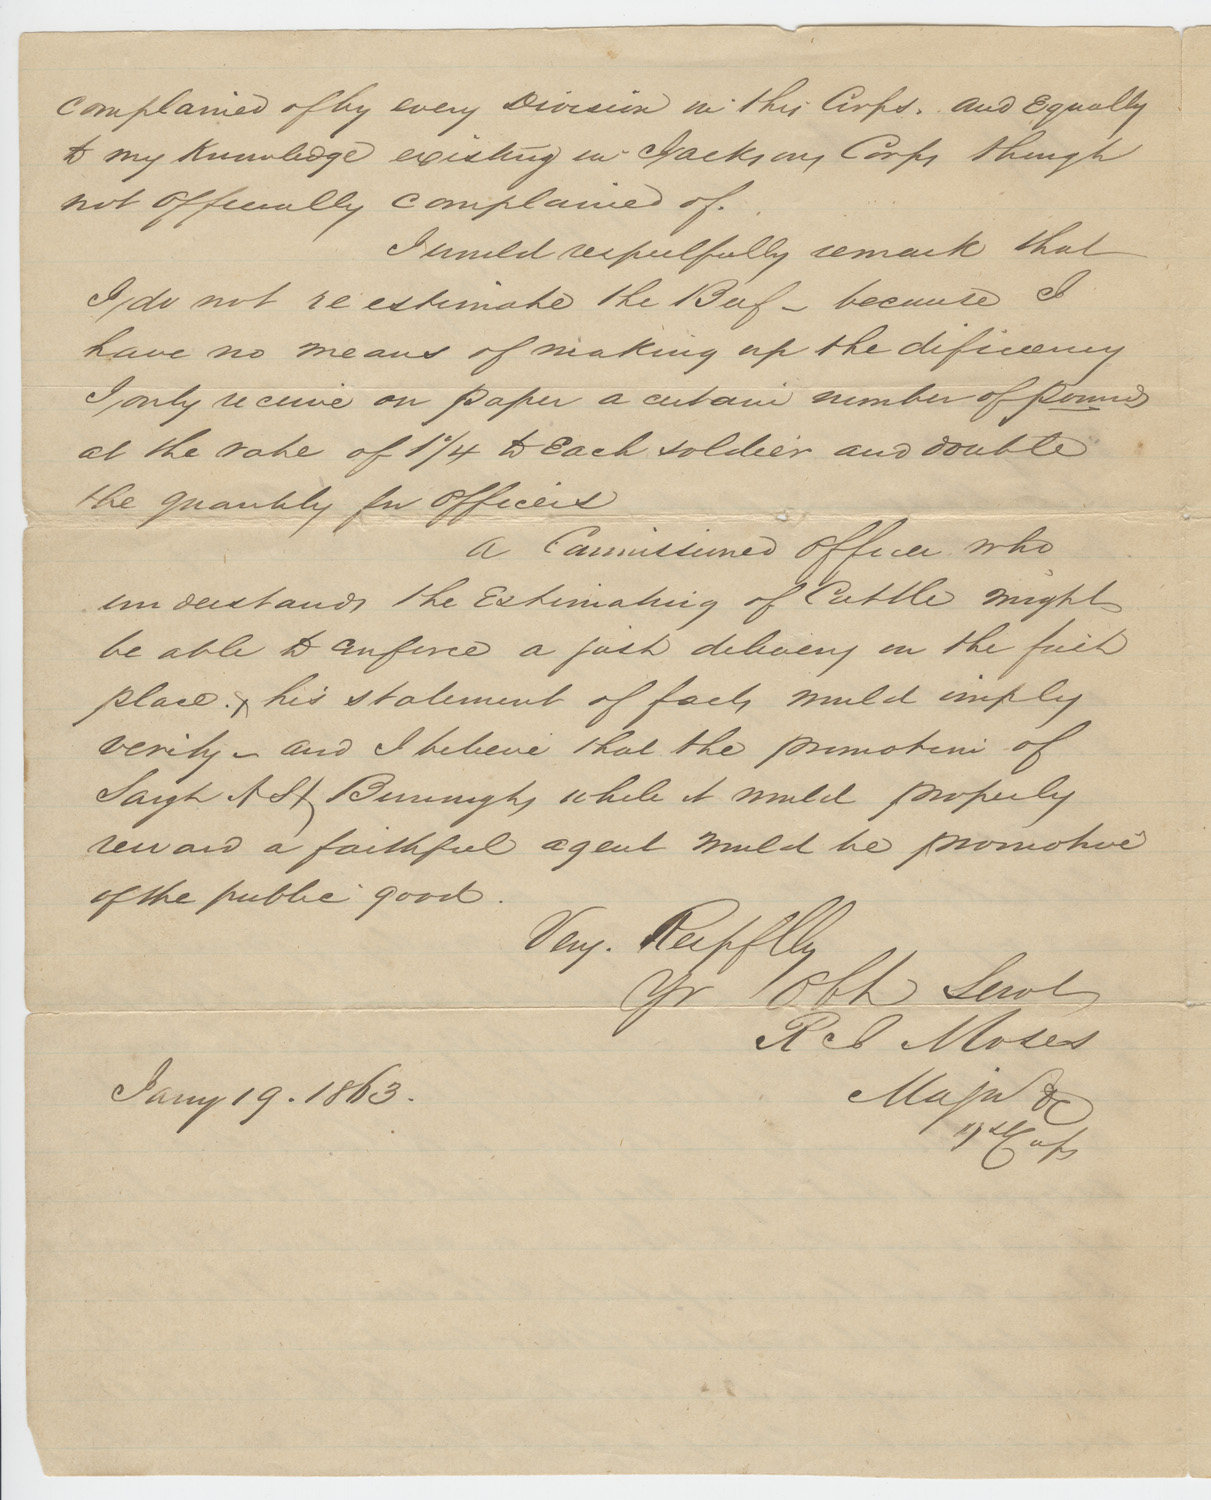 complained of by every Division in this Corps. and Equally
to my Knowledge existing in Jacksons Corps though
not officially complained of.
I would respectfully remark that
I do not re estimate the Beef - because I
have no means of making up the dificiency
I only receive on paper a certain number of pounds
at the rate of 1 1/4 to Each soldier and double
the quantity for officers
A Commissioned officer who
understands the Estimating of Cattle might
be able to enforce a just delivery in the first
place. & his statement of facts would imply
verity - and I believe that the promotion of
Sargt Burroughs while it would properly
reward a faithful agent would be promotive
of the public good.
Very. Respflly
Yr Obt Servt
R J Moses
Major &c
1st Corps
Jany 19. 1863.